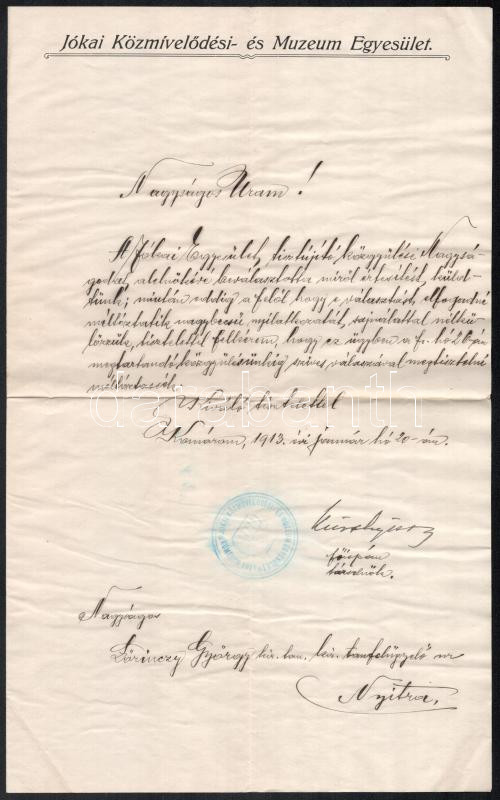 Jókai Közmívelődési- és Muzeum Egyesület.
Nagyságos Uram!
A Jókai Egyesület, tisztújító közgyűlése Nagysá-
godat, alelnökévé beválasztotta miről értesítést, küld-
tünk; miután eddig a felől hogy e választást, elfogadni
méltóztatik nagybecsű nyilatkozatát, sajnálattal nélkü-
lözzük, tisztelettel felkérem, hogy ez ügyben a f. hó 26-án
megtartandó közgyűlésünkig szíves válaszával megtisztelni
méltóztassék.
Kiváló tisztelettel
Komárom, 1913. évi január hó 20-án.
főispán
társelnök.
Nagyságos
Lőrinczy György kir. tan. kir. tanfelügyelő úr
Nyitra,